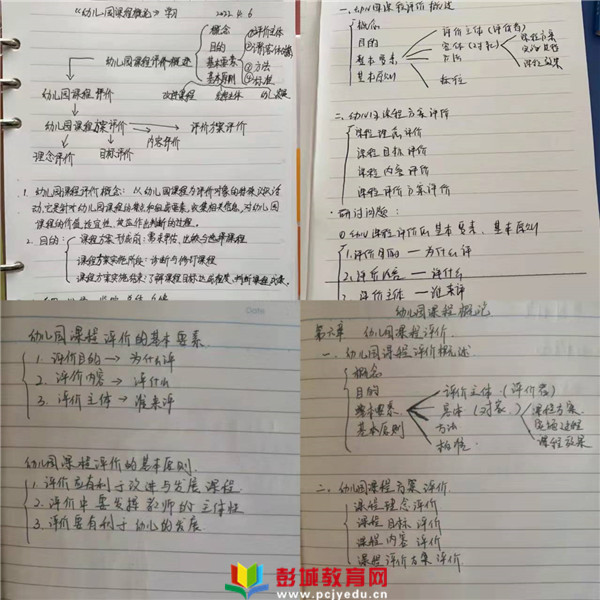 《幼儿园课程概论》学习 2022.4.6
概念
目的
基本要素
基本原则
①评价主体
②评价客体
③方法
④标准
幼儿园课程评价概述
幼儿园课程评价
幼儿园课程方案评价
评价方案评价
内容评价
理念评价
目标评价
1. 幼儿园课程评价概念：以幼儿园课程为评价对象的特殊认识活
动，它是针对幼儿园课程的特点和组成要素，收集相关信息，对幼儿园
课程的价值、适宜性、效益作出判断的过程。
2. 目的：
课程方案形成前：需求评估，比较与选择课程
课程方案实施阶段：诊断与修订课程
课程方案实施结束：了解课程目标达成程度，判断课程成效。
一、幼儿园课程评价概述
概念
目的
基本要素
基本原则
评价主体（评价者）
客体（对象）
方法
标准
课程方案
实施过程
课程效果
二、幼儿园课程方案评价
课程理念评价
课程目标评价
课程内容评价
课程评价方案评价
研讨问题：
①幼儿园课程评价的基本要素、基本原则
1. 评价目的 — 为什么评
2. 评价内容 — 评什么
3. 评价主体 — 谁来评
Date
幼儿园课程评价的基本要素
1. 评价目的 → 为什么评
2. 评价内容 → 评什么
3. 评价主体 → 谁来评
幼儿园课程评价的基本原则
1. 评价应有利于改进与发展课程
2. 评价中要发挥教师的主体性
3. 评价要有利于幼儿的发展
幼儿园课程概论
第六章 幼儿园课程评价
一、幼儿园课程评价概述
概念
目的
基本要素
基本原则
评价主体（评价者）
客体（对象）
方法
标准
课程方案
实施过程
课程效果
二、幼儿园课程方案评价
课程理念评价
课程目标评价
课程内容评价
课程评价方案评价
彭城教育网
www.pcjyedu.cn